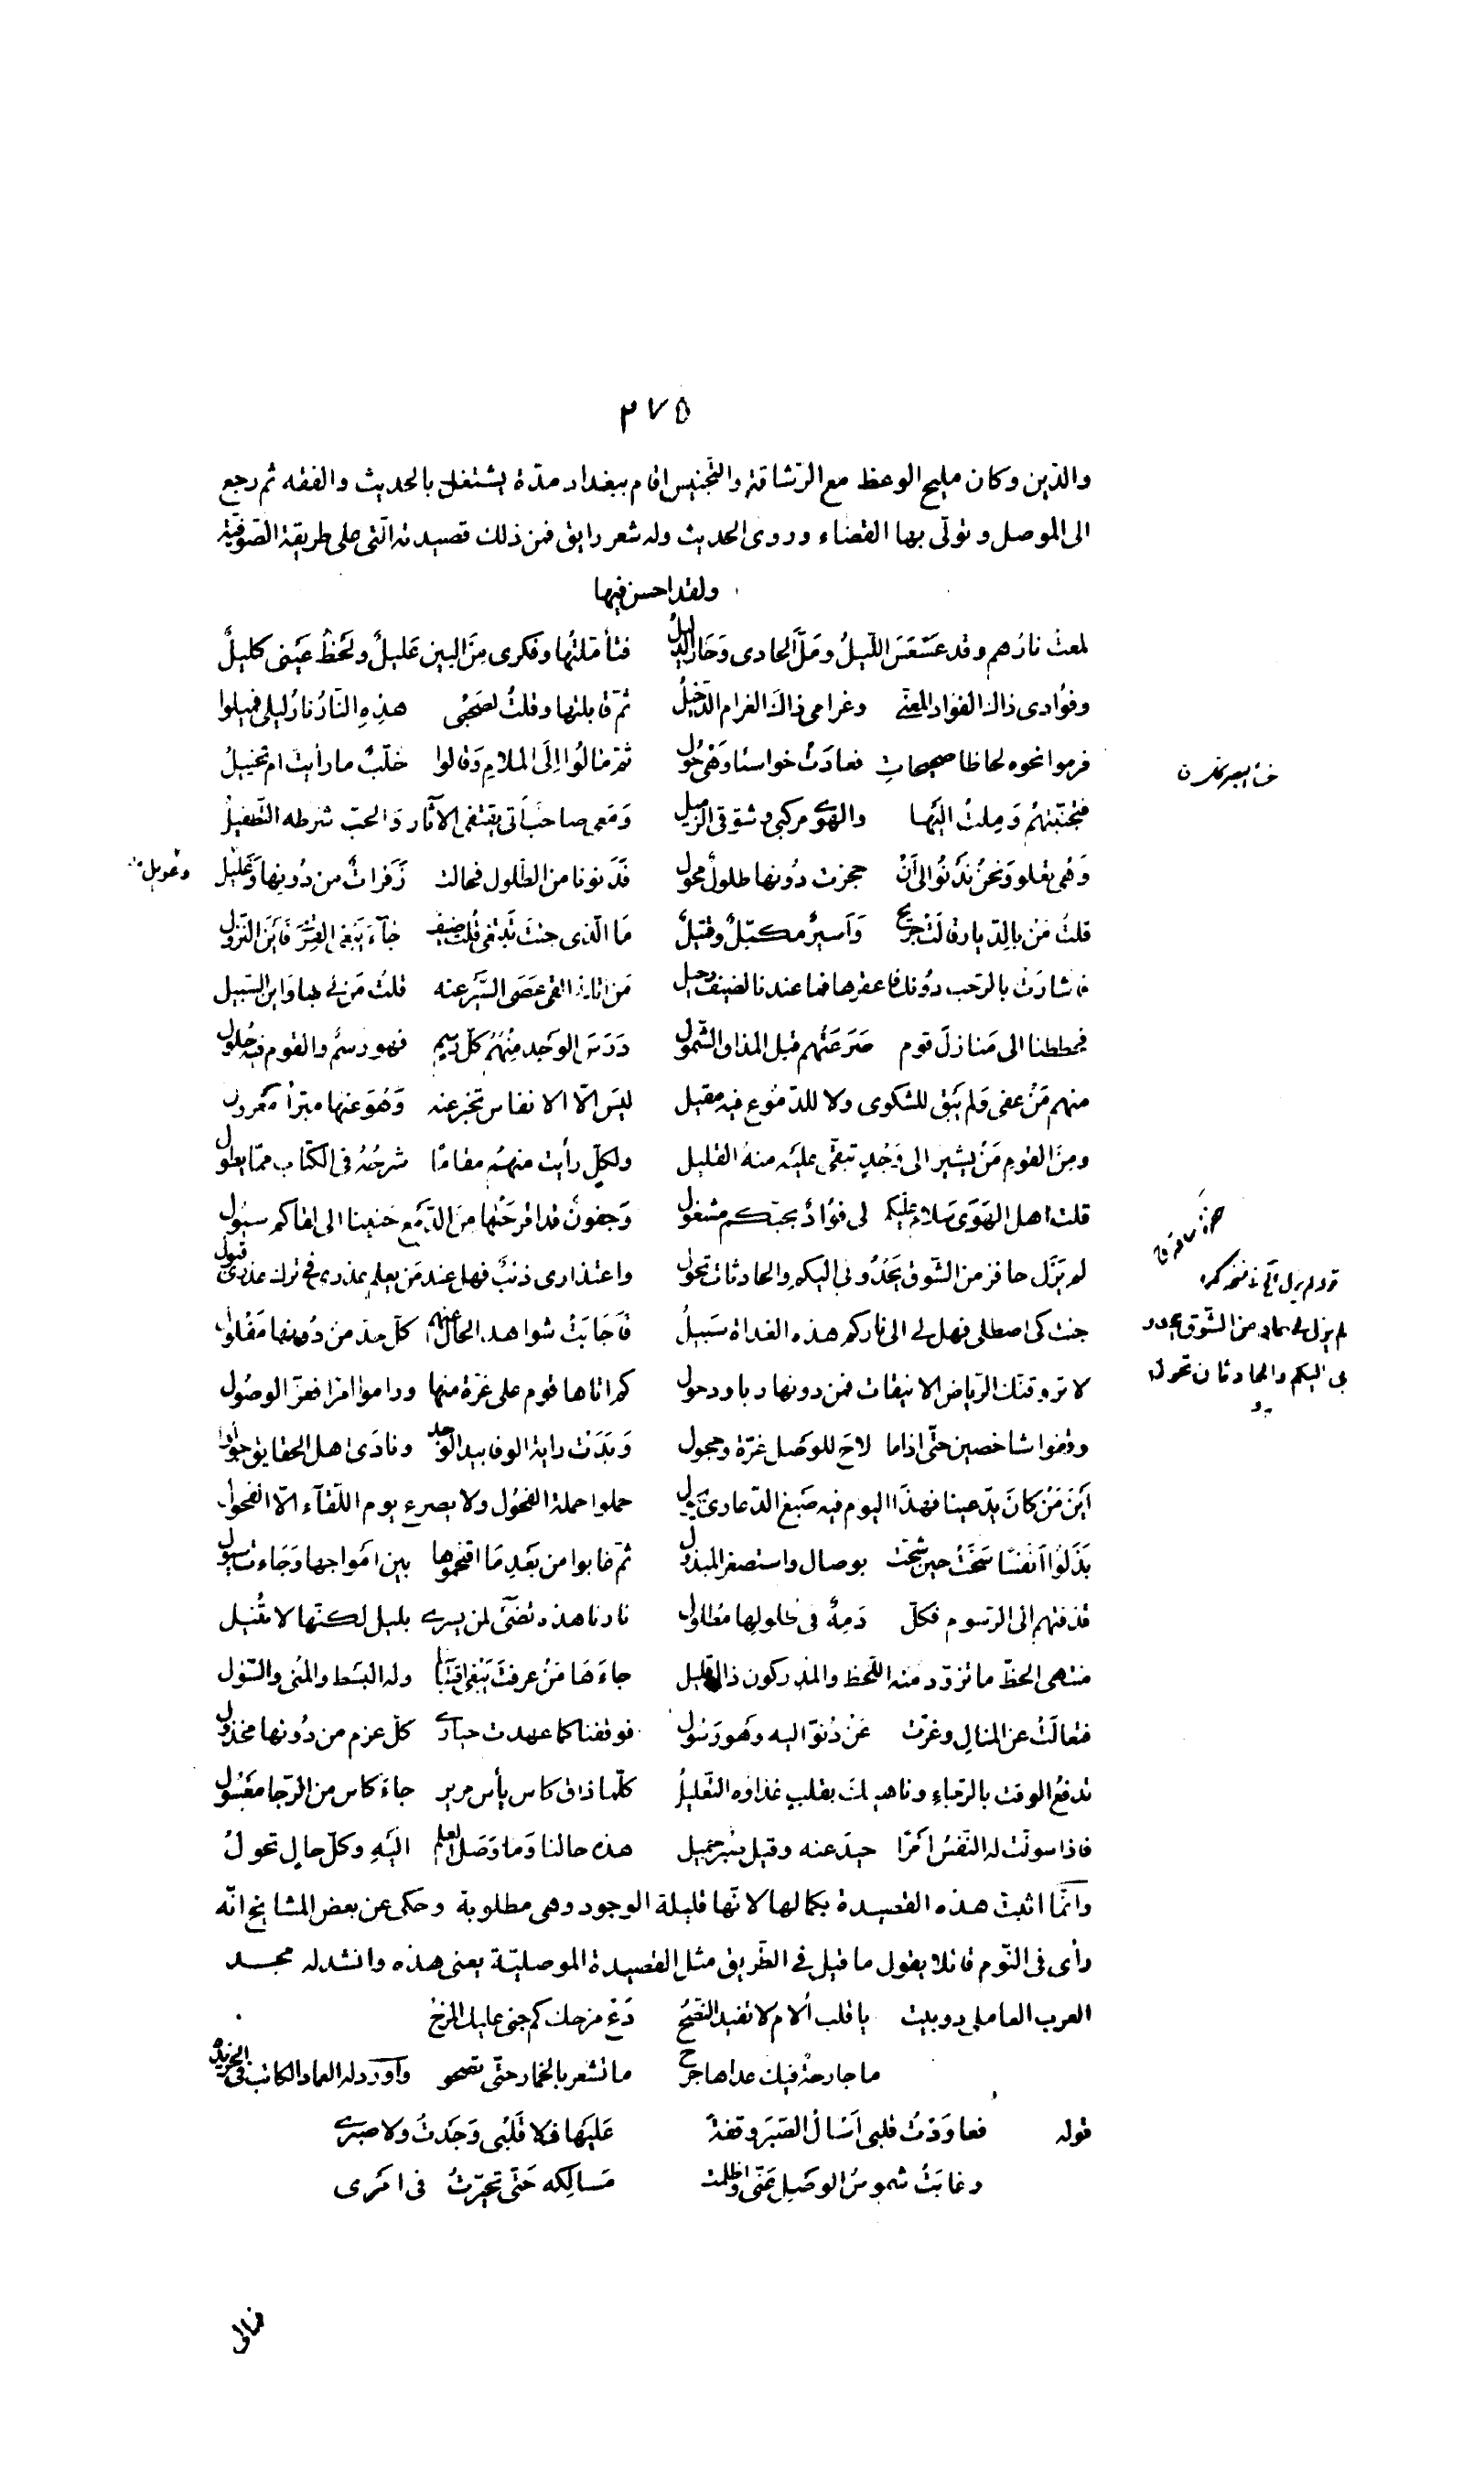 ٢٧٥
والدّين وكان مليح الوعظ مع الرّشاقة والتّجنيس اقام ببغداد مدّة يشتغل بالحديث والفقه ثم رجع
الى الموصل وتولّى بها القضاء وروى الحديث وله شعر رايق فمن ذلك قصيدته الّتى على طريقة الصّوفيّة
ولقد احسن فيها
لمعتْ نارُهم وقد عَسْعَسَ اللّيلُ ومَلَّ الحادى وَحَار الدليلُ فتأمّلتُها وفكرى مِنَ البين عَليلٌ ولَحْظُ عَينى كليلٌ
وفؤادى ذاك الفؤاد المعنّى وغرامى ذاكَ الغرام الدّخيلُ ثمّ قابلتها وقلتُ لصَحْبى هذِهِ النّارُ نارُ ليلى فميلوا
فرموا نحوه لحاظا صحيحاتٍ فعادَتْ خواسئا وَهْى حُول ثمّ مالُوا اِلَى الملامِ وَقالوا خلّبٌ ما رأيت ام تخييلُ
فتجنّبتهُم وَمِلتُ اليَها والهوى مركبى وشوقى الزميل وَمَعى صاحبٌ اتى يقتفى الآثار وَالحبّ شرطه التّطفيلُ
وَهْى تعلو وَنحنُ نَدْنُو الى اَنْ حجزت دُونها طلولٌ محول فَدَنونا من الطّلول فحالت زَفَراتٌ من دُونِها وَغليل
وعويل
قلتُ مَنْ بالدّيار قالَتْ جريح وَاَسيرٌ مكبّلٌ وقتيلٌ مَا الّذى جئتَ تَبتغى قُلتُ ضيف جآءَ يَبغى القِرى فَاَيْنَ النّزول
فاشارَتْ بالرّحب دُونك فاعقرها فما عندنا لضيف رحيل مَن اتانا القى عَصَى السَّيْرِ عنه قلتُ مَن لى بها وَاين السّبيل
فحططنا الى مَنازِلَ قوم صَرَعَتْهم قبل المذاق الشّمول دَرَسَ الوَجد مِنْهُمُ كلّ رسمٍ فهو رسمٌ والقوم فيه حُلول
منهم مَنْ عفى وَلم يَبْق للشكوى ولا للدّموع فيه مقيل ليسَ الّا الانفاس تخبر عنه وَهُوَ عنها مبرّأ معزول
ومِنَ القومِ مَنْ يشير الى وَجْدٍ تبقّى عليَه منهُ القليل ولكلٍّ رأيت منهم مقامًا شرحُهُ فى الكتاب ممّا يطول
قلت اهل الهَوَى سَلام عليكم لى فؤادٌ بحبّكم مشغول وَجفونٌ قد اقرحَتْها مِنَ الدَّمع حنينا الى لقاكم سيول
لم يَزَل حافز من الشّوق يَحْدُو بى اليكم والحادثات تحول واعتذارى ذنبٌ فهل عند مَن يعلم عذرى فى ترك عذرى قبول
جئت كى اصطلى فهل لى الى ناركم هذه الغداة سَبيلُ فَاَجَابَتْ شواهد الحال عنهم كلّ حدّ من دُونها مَفْلول
لا تروقنّك الرّياض الانيقات فمن دونها ربا ودحول كم اتاها قوم على غرّة منها وراموا امرا فعزّ الوصُول
وقفوا شاخصين حتّى اذا ما لاحَ للوَصْل غرّة وحجول وَبَدَت راية الوفا بيد الوجد ونادَىٰ اهل الحقايق جولوا
اَينَ مَنْ كانَ يدّعينا فهذَا اليوم فيه صَبغ الدّعاوى يحول حملوا حملة الفحُول ولا يصرع يوم اللّقآء الّا الفحول
بَذَلوُا اَنْفسًا سَخَتْ حين شحّت بوصال واستصغر المبذول ثمّ غابوا من بَعدِ مَا اقتحموها بين امْواجها وَجَاءت سيول
قذفتهم الى الرّسوم فكلّ دَمِهُ فى طلولها مَطلول نارنا هذه تضىٓئ لمن يسرى بليل لكنّها لا تُنيل
منتهى الحظّ ما تزوّد منه اللّحظ والمدركون ذاك قليل جاءَهَا مَنْ عرفتَ يَبْغى اقتباسا وله البَسْط والمُنى والسّول
فتعالَتْ عن المنالِ وعَزّت عَنْ دُنوّ اليه وهُو رَسُول فوقفنا كما عهدت حيارى كلّ عزم من دُونها مخذول
ندفعُ الوقت بالرّجاءِ وناهيك بقلبٍ غذاؤه التّعليلُ كلّما ذاق كاس يأس مرير جاءَ كاس من الرّجا معْسُول
فاذا سولت له النّفسُ اَمْرًا حيدَ عنه وقيل صَبْر جميل هذه حالنا وَما وَصَل العلم اليَهِ وكلّ حالٍ تحولُ
وانّما اثبت هذه القصيدة بكمالها لانّها قليلة الوجود وهى مطلوبة وحكى عن بعض المشايخ انّه
رأى فى النّوم قائلا يقول ما قيل فى الطّريق مثل القصيدة الموصليّة يعنى هذه وانشد له مجد
العرب العاملى دوبيت يا قلب اُلام لا تفيد النّصْحُ دَعْ مزحك كم جنى عليك المزحُ
ما جارحةٌ فيك عداها جرح ما تشعر بالخمار حتّى تصحو وآورد له العماد الكاتب فى الخريدة
قوله فعاوَدْتُ قلبى اَسْالُ الصَبْرَ وقفةً عَلَيها فلا قَلْبى وَجَدتُ ولا صبرى
وغابَتْ شموسُ الوصَلِ عَنّى واظلمت مَسالِكه حَتّى تحيّرتُ فى امرى
لم يزل لى من الشّوق يحدو
بى اليكم والحادثات تحول
فمالى